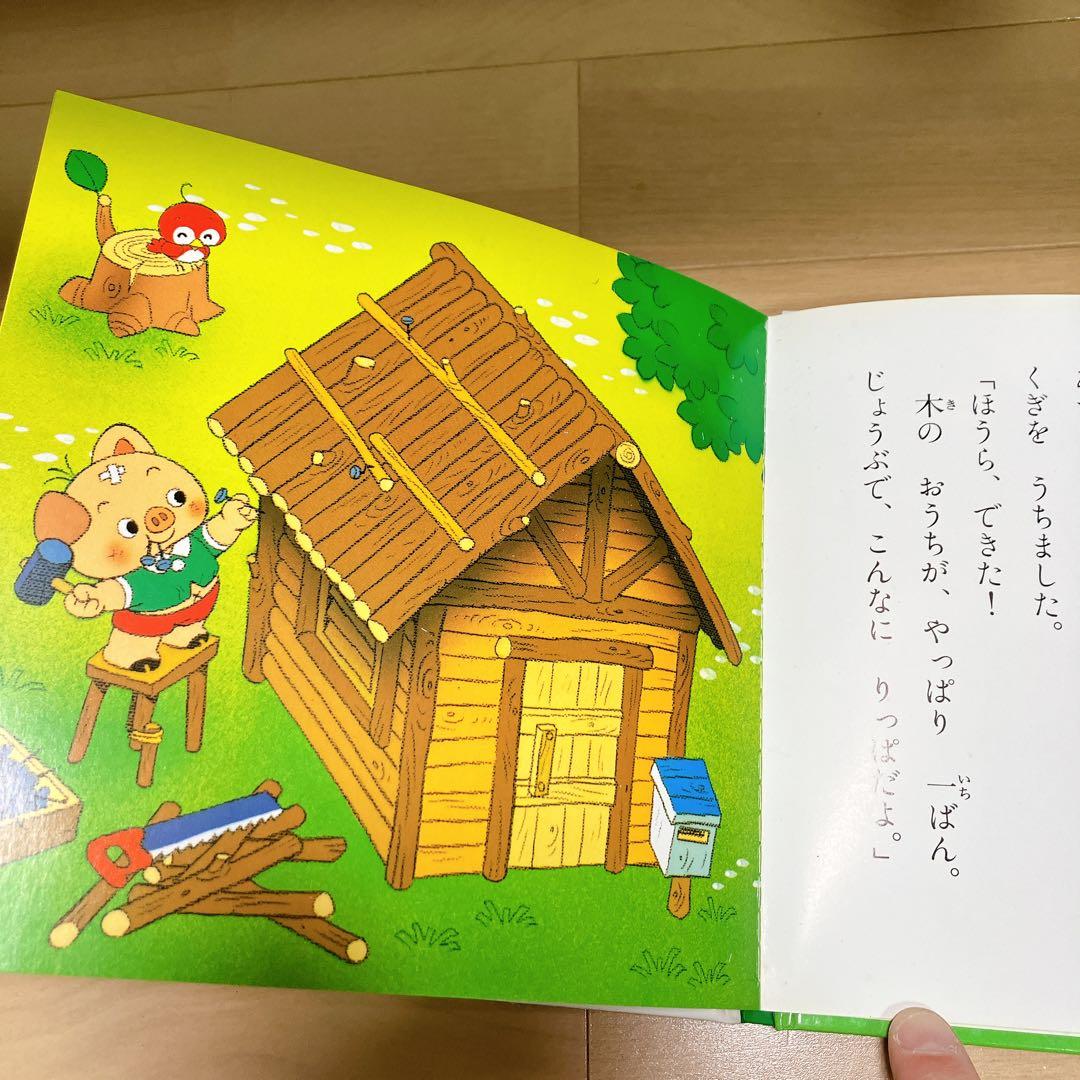 くぎを　うちました。
「ほうら、できた！
木の　おうちが、やっぱり　一ばん。
じょうぶで、こんなに　りっぱだよ。」
き
いち